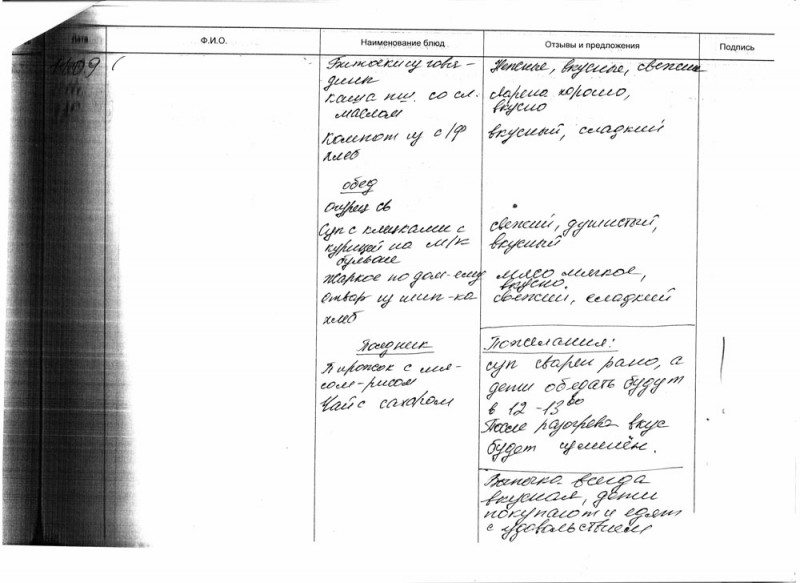 Дата Ф.И.О. Наименование блюд Отзывы и предложения Подпись
Биточки из говя- Нежные, вкусные, свежие
дины
каша пш. со сл. сварена хорошо,
маслом вкусно
Компот из с/ф вкусный, сладкий
хлеб
обед
Огурец св
Суп с клецками с свежий, душистый,
курицей на м/к вкусный
бульоне
Жаркое по дом-ему мясо мягкое,
вкусно.
отвар из шип-ка свежий, сладкий
хлеб
Полдник Пожелания:
Пирожок с мя- суп сварен рано, а
сом-рисом дети обедать будут
Чай с сахаром в 12 - 13 00
После разогрева вкус
будет изменён.
Выпечка всегда
вкусная, дети
покупают и едят
с удовольствием